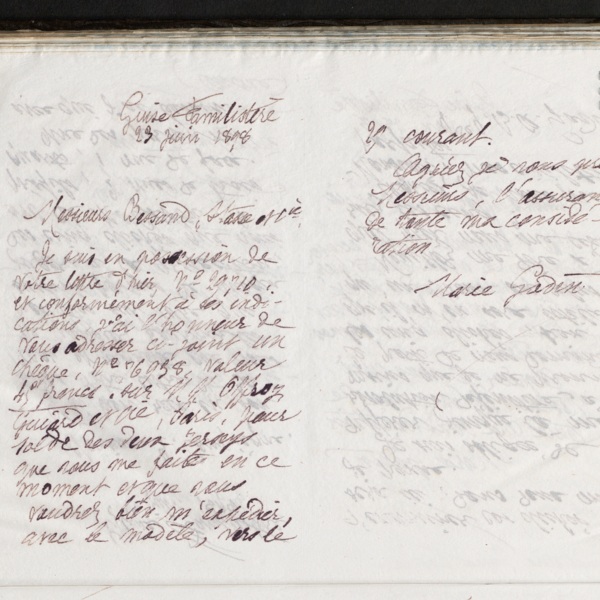 Guise Familistère
23 Juin 1898
Messieurs Bessand, Stasse et Cie,
Je suis en possession de
votre lettre d'hier, No 29710.
et conformément à ses indi-
cations j'ai l'honneur de
vous adresser ci-joint un
chèque, No 76958, valeur
francs, sur M.M. Offroy
Guiard et Cie, Paris, pour
solde des deux jerseys
que vous me faites en ce
moment et que vous
voudrez bien m'expédier,
avec le modèle, vers le
25 courant.
Agréez je vous pr
Messieurs, l'assuran
de toute ma considé-
ration
Marie Godin